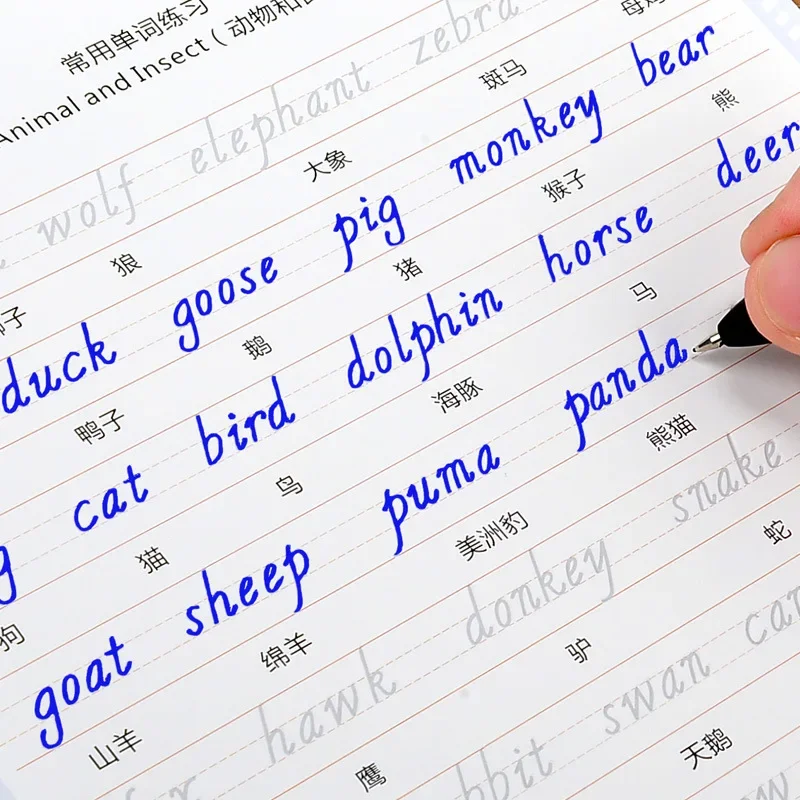 常用单词练习
Animal and Insect ( 动物和
wolf elephant zebra
子 狼 大象 斑马
duck goose pig monkey bear
鸭子 鹅 猪 猴子 熊
g cat bird dolphin horse deer
狗 猫 鸟 海豚 马
goat sheep puma panda
山羊 绵羊 美洲豹 熊猫
hawk donkey snake
鹰 驴 蛇
bbit swan
天鹅